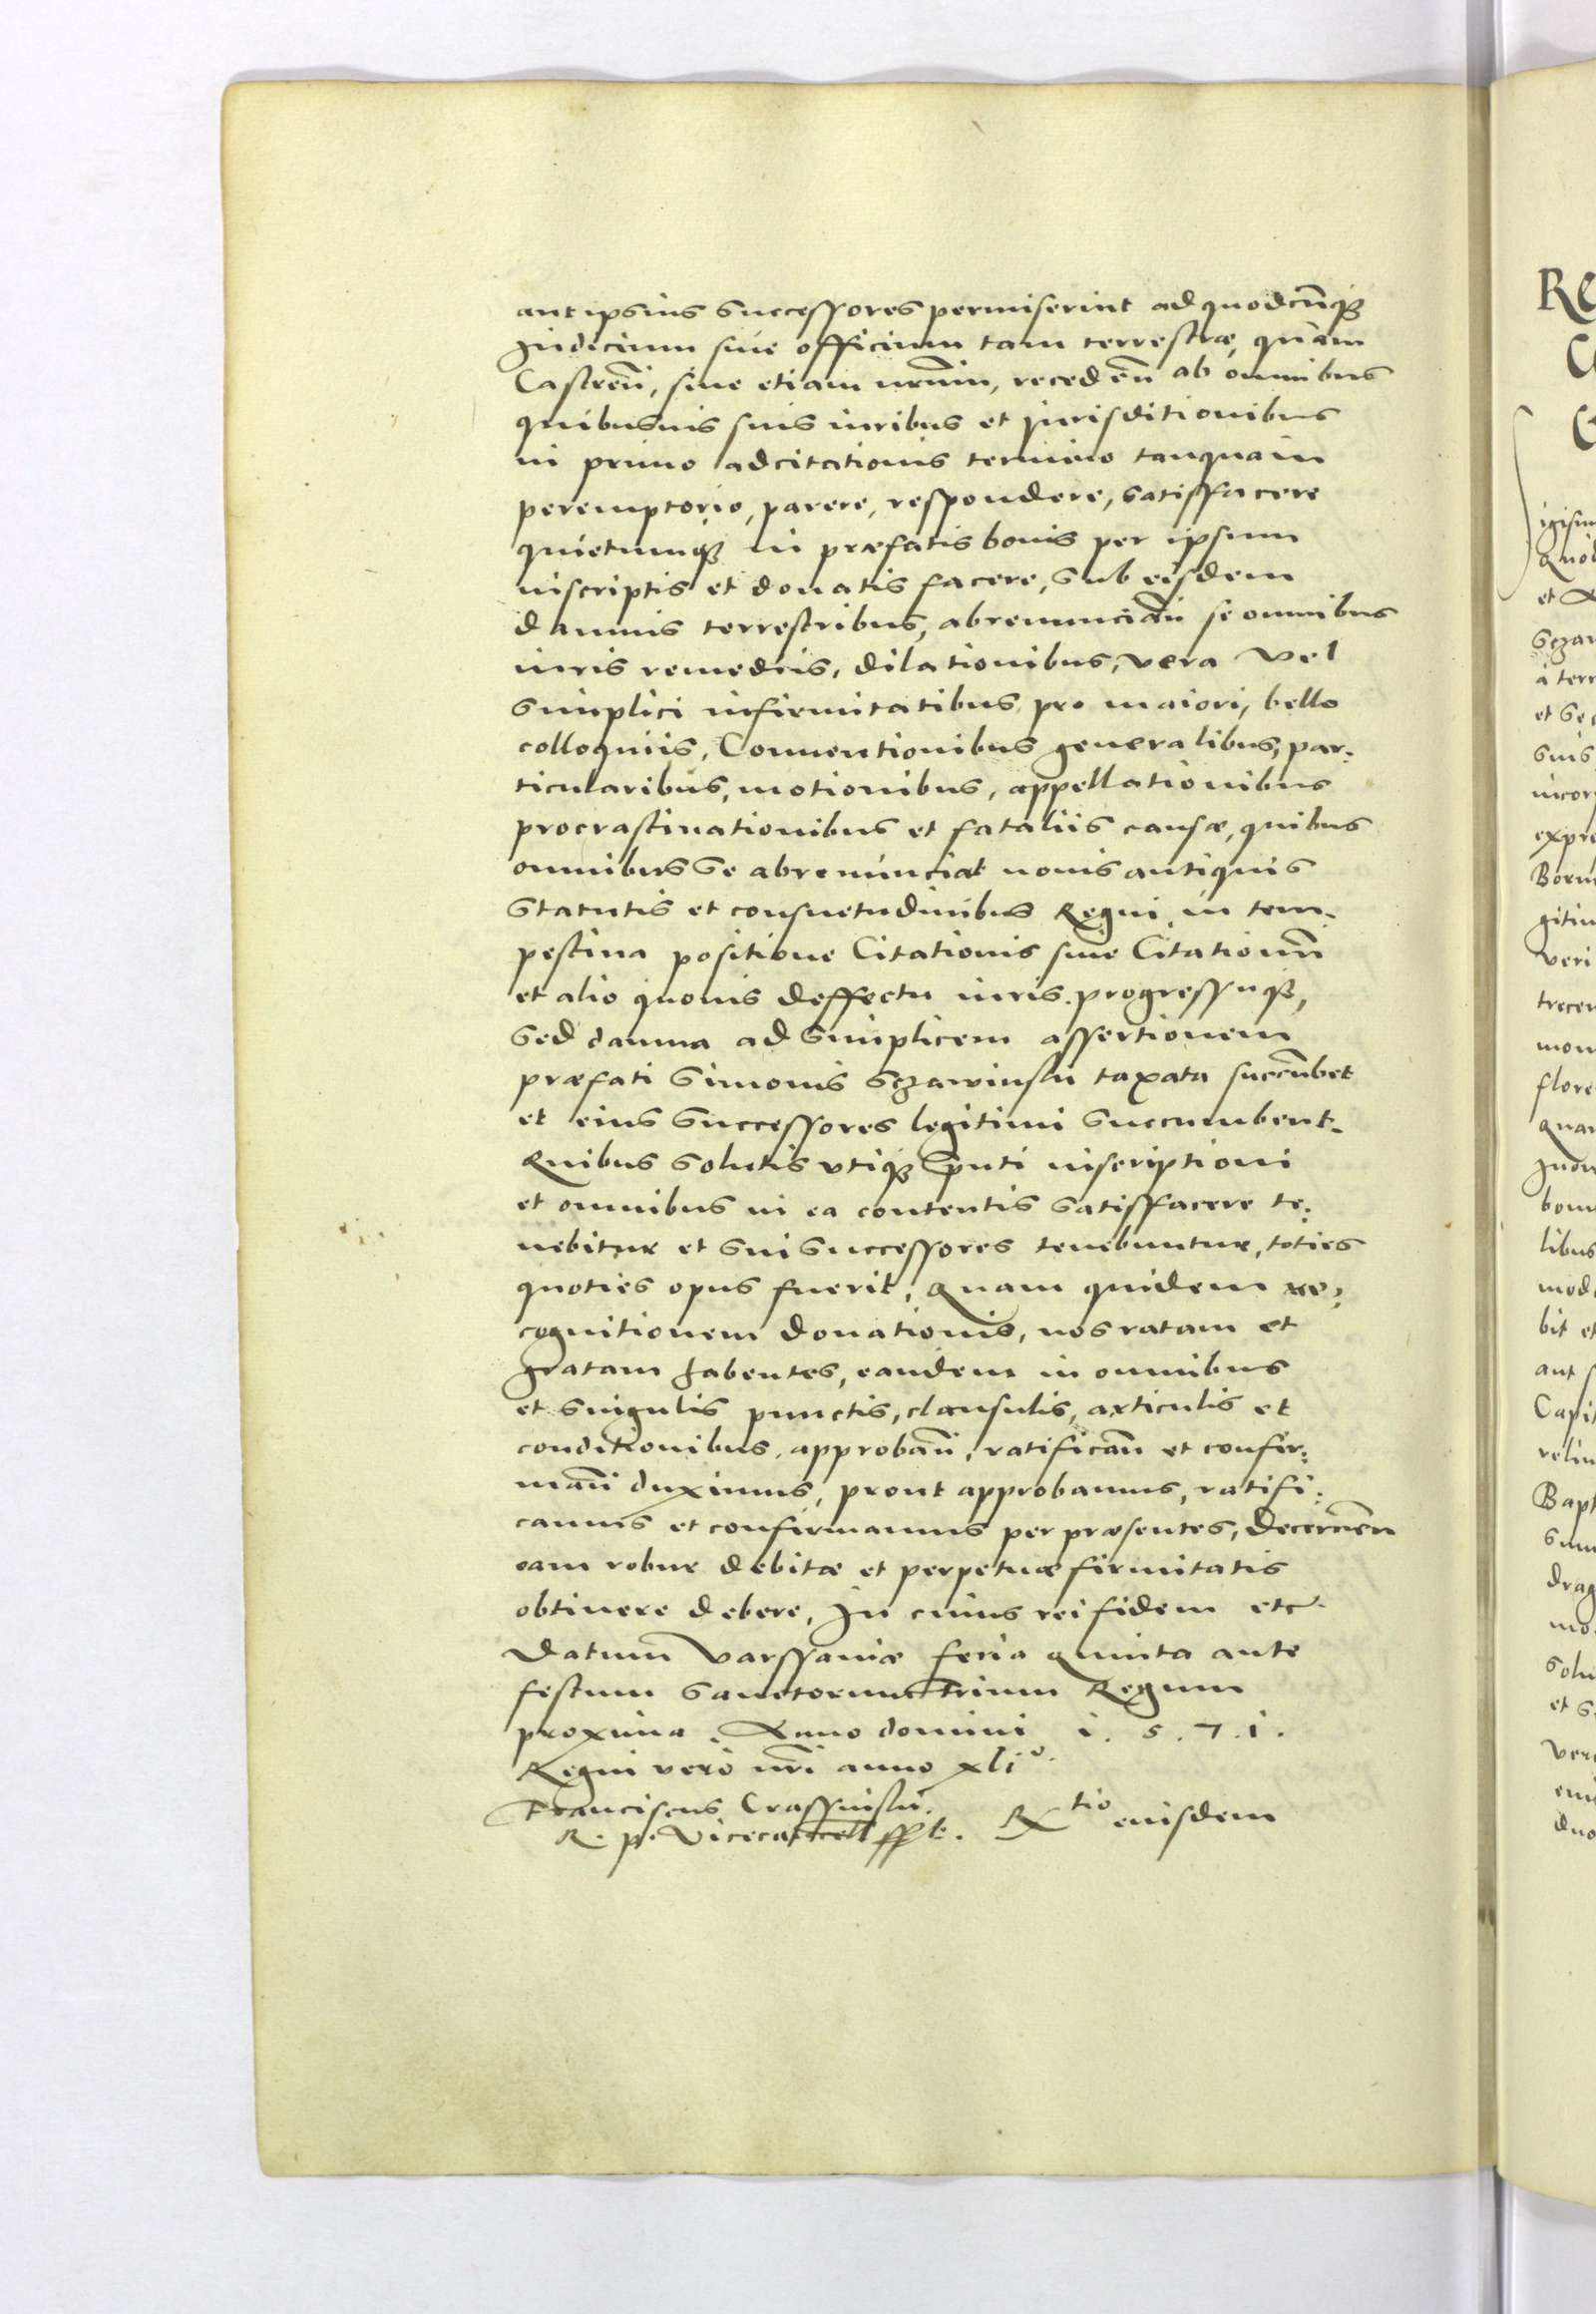 aut ipsius successores permiserint ad quodcūqꝫ
Judicium siue officium tam terrestræ, quam
Castreñ, siue etiam nrum, recedeñ ab omnibus
quibusuis suis iuribus et jurisditionibus
in primo adcitationis termino tanquam
peremptorio, parere, respondere, satisfacere
quietumqꝫ in præfatis bonis per ipsum
inscriptis et donatis facere, sub eisdem
damnis terrestribus, abrenuncian̄ se omnibus
iuris remediis, dilationibus, vera vel
simplici infirmitatibus pro maiori, bello
colloquiis, Conuentionibus generalibus, par:
ticularibus, motionibus, appellationibus
procrastinationibus et fataliis causæ, quibus
omnibus se abrenunciat nouis antiquis
statutis et consuetudinibus Regni, in tem-
pestiua positione Citationis siue Citationū
et alio quouis deffectu iuris progressuqꝫ,
sed damna ad simplicem assertionem
præfati Simonis Sczawinski taxata succūbet
et eius successores legitimi succumbent.
Quibus solutis vtiqꝫ pn̄ti inscriptioni
et omnibus in ea contentis satisfacere te:
nebitur et sui successores tenebuntur, toties
quoties opus fuerit, Quam quidem re:
cognitionem donationis, nos ratam et
gratam habentes, eandem in omnibus
et singulis punctis, clausulis, articulis et
conditionibus, approban̄, ratifican̄ et confir:
man̄ duximus, prout approbamus, ratifi:
camus et confirmamus per præsentes, decernen̄
eam robur debitæ et perpetuæ firmitatis
obtinere debere, In cuius rei fidem etc.
Datum Varssauiæ feria quinta ante
festum Sanctorum Trium Regum
proxima. Anno domini i. 5. 7. i.
Regni vero nr̄i anno xli°.
Franciscus Crassinski
R. p. Vicecancell sspt. Rtio eiusdem
Re
igism
Quod
et
Sczaw
a terr
et Se
suis
incor
expre
Born
gitim
veri
trecen
mon
flore
quar
bon
libus
mod
bit et
aut s
Capit
relin
Bapt
sum
drag
mo
solu
et s
Vere
duo